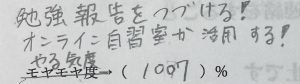 勉強報告をつづける!
オンライン自習室か活用する!
やる気度
モヤモヤ度→(100?)%